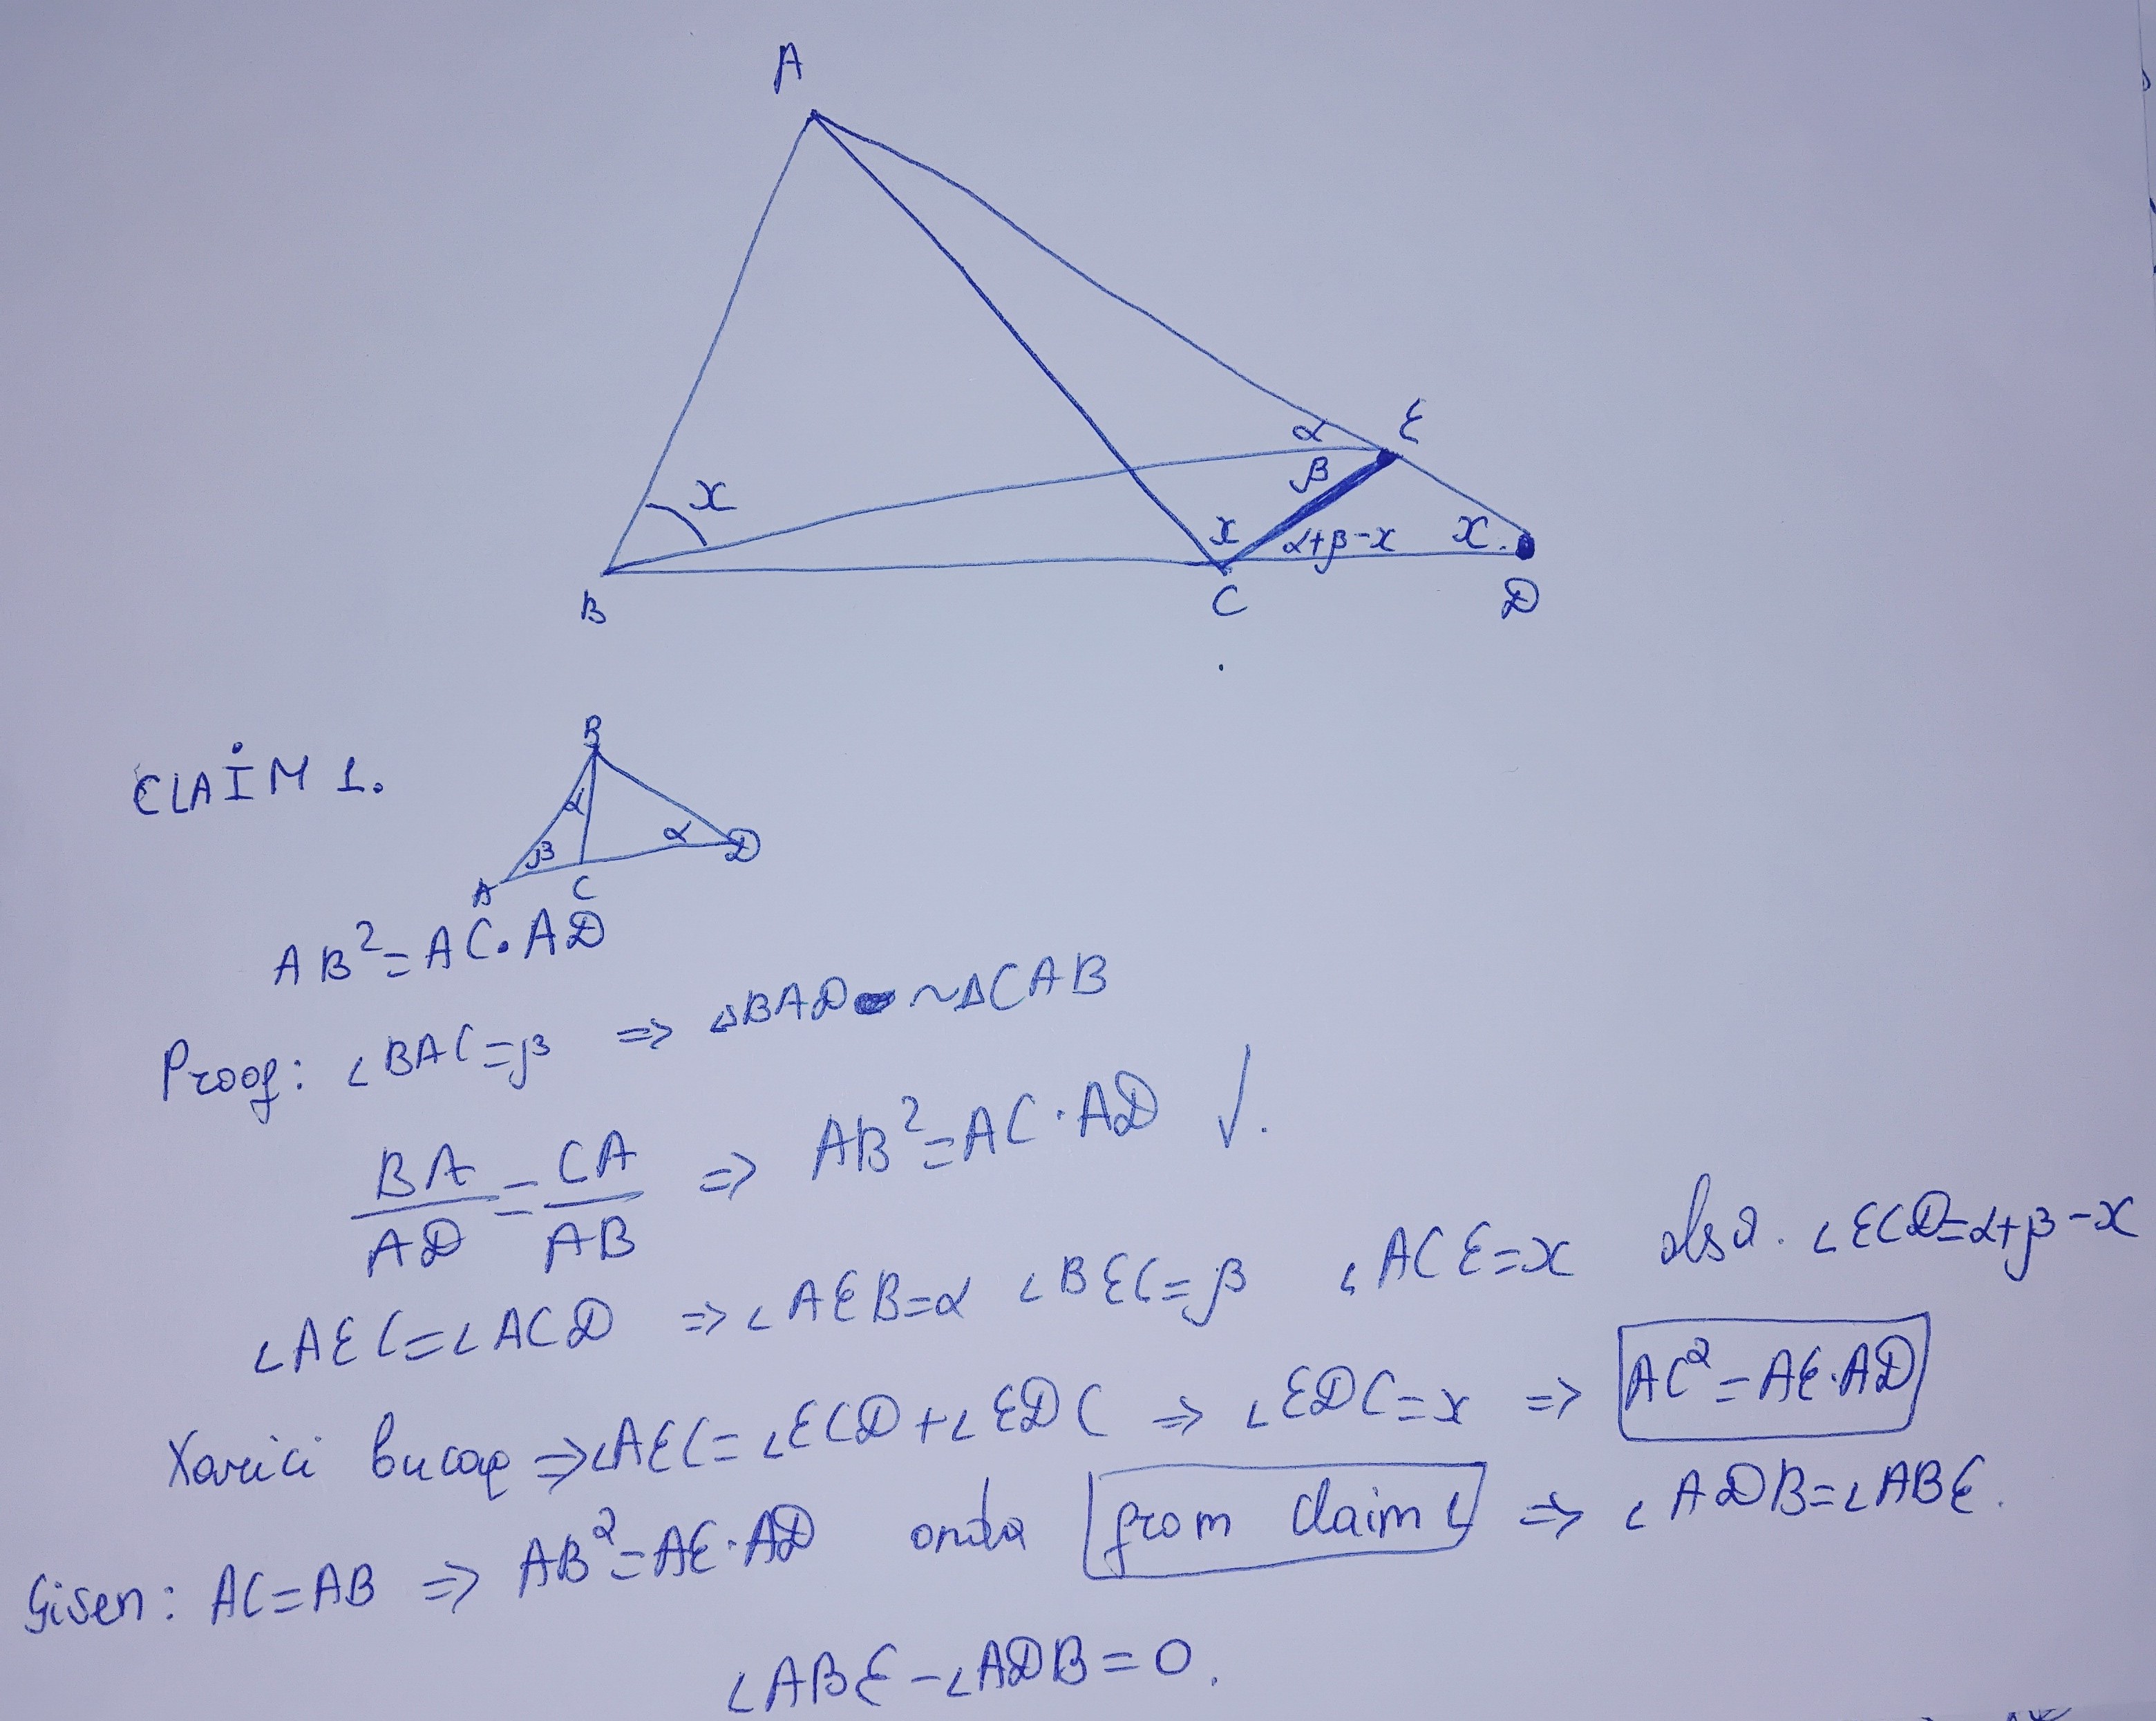 A
α
Ɛ
β
x
x
α+β-x
x.
B
C
D
CLAİM 1.
B
α
β
α
D
A
C
AB²=AC·AD
Proof: ∠BAC=β => △BAD ~△CAB
BA/AD=CA/AB => AB²=AC·AD √.
∠AƐC=∠ACD => ∠AƐB=α ∠BƐC=β ∠ACƐ=x also. ∠ƐCD=α+β-x
Xarici bucaq =>∠AƐC=∠ƐCD+∠ƐDC => ∠ƐDC=x => AC²=AƐ·AD
Given: AC=AB => AB²=AƐ·AD onda from claim 1 => ∠ADB=∠ABƐ.
∠ABƐ-∠ADB=0.